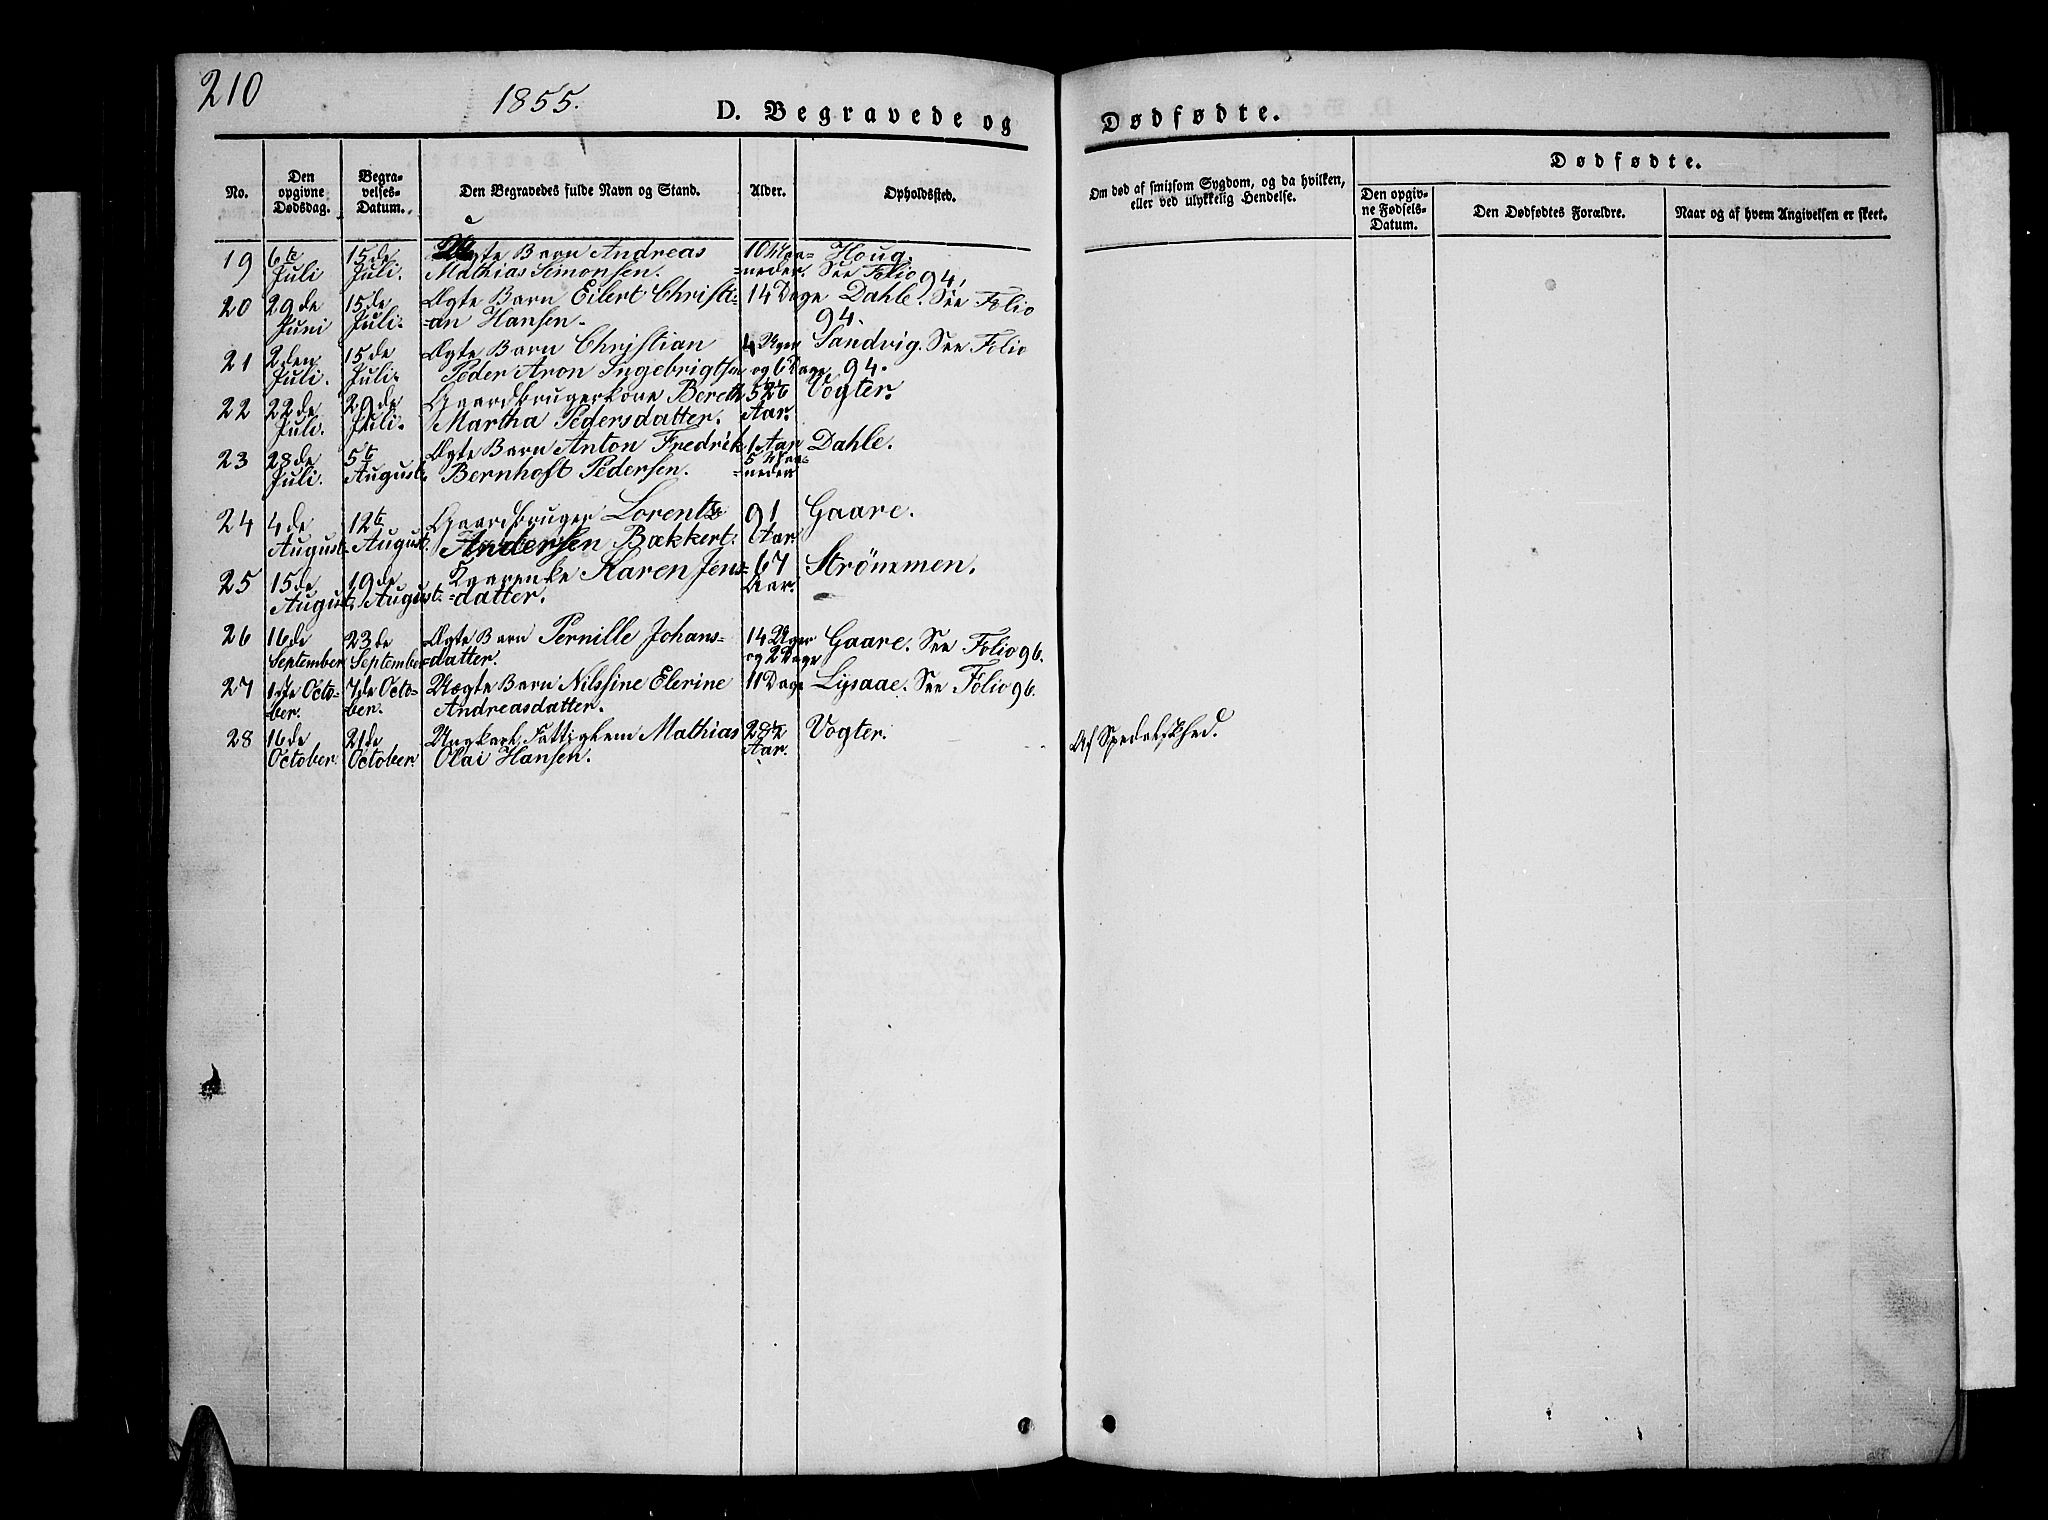 210
1855.
D. Begravede og
Dødfødte.
No.
Den opgivne Dødsdag.
Begravelses-Datum.
Den Begravedes fulde Navn og Stand.
Alder.
Opholdssted.
Om død af smitsom Sygdom, og da hvilken,
eller ved ulykkelig Hendelse.
Dødfødte.
Den opgivne Fødsels-Datum.
Den Dødfødtes Forældre.
Naar og af hvem Angivelsen er skeet.
19 6te 15de Ægte Barn Andreas 10 Maa= Houg.
Juli Juli. Mathias Simonsen. =neder. See Folio 94.
20 29de 15de Ægte Barn Eilert Christi= 14 Dage Dahle. See Folio
Juni Juli. =an Hansen. 94.
21 2den 15de Ægte Barn Christian 4 Uger Sandvig. See Folio
Juli. Juli. Peder Aron Ingebrigtsen og 6 Dage 94.
22 22de 29de Gaardbrugerkone Bereth 52 Vogter.
Juli. Juli. Martha Pedersdatter. Aar.
23 28de 5te Ægte Barn Anton Fredrik 1 Aar Dahle.
Juli. August. Bernhoft Pedersen. 5 Maa= =neder
24 4de 12te Gaardbruger Lorents 91 Gaare.
August. August. Andersen Bækkert. Aar
25 15de 19de Karen Jens= 67 Strömmen.
August. August. =datter. Aar.
26 16de 23de Ægte Barn Pernille Johans= 14 Uger Gaare. See Folio 96.
September September =datter. og 2 Dage
27 1ste Octo= 7de Octo= Uægte Barn Nilsine Elerine 11 Dage Lysaae. See Folio 96.
ber. ber. Andreasdatter.
28 16de 21de Ungkarl, Fattiglem Mathias 28½ Vogter. Af Spedalskhed.
October. October. Olai Hansen. Aar.